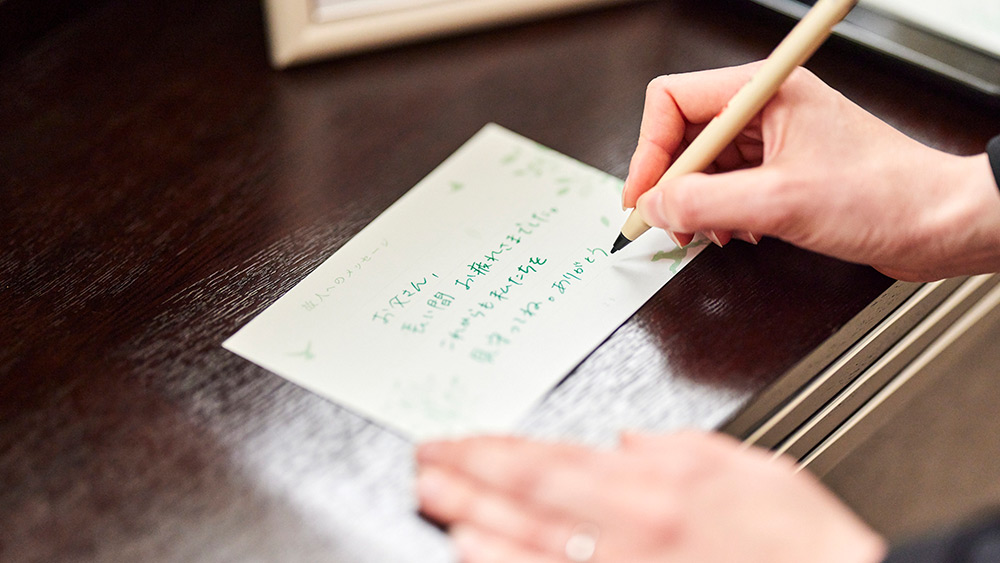 故人へのメッセージ
お父さん、
長い間 お疲れさまでした。
これからも私たちを
見守ってね。ありがとう